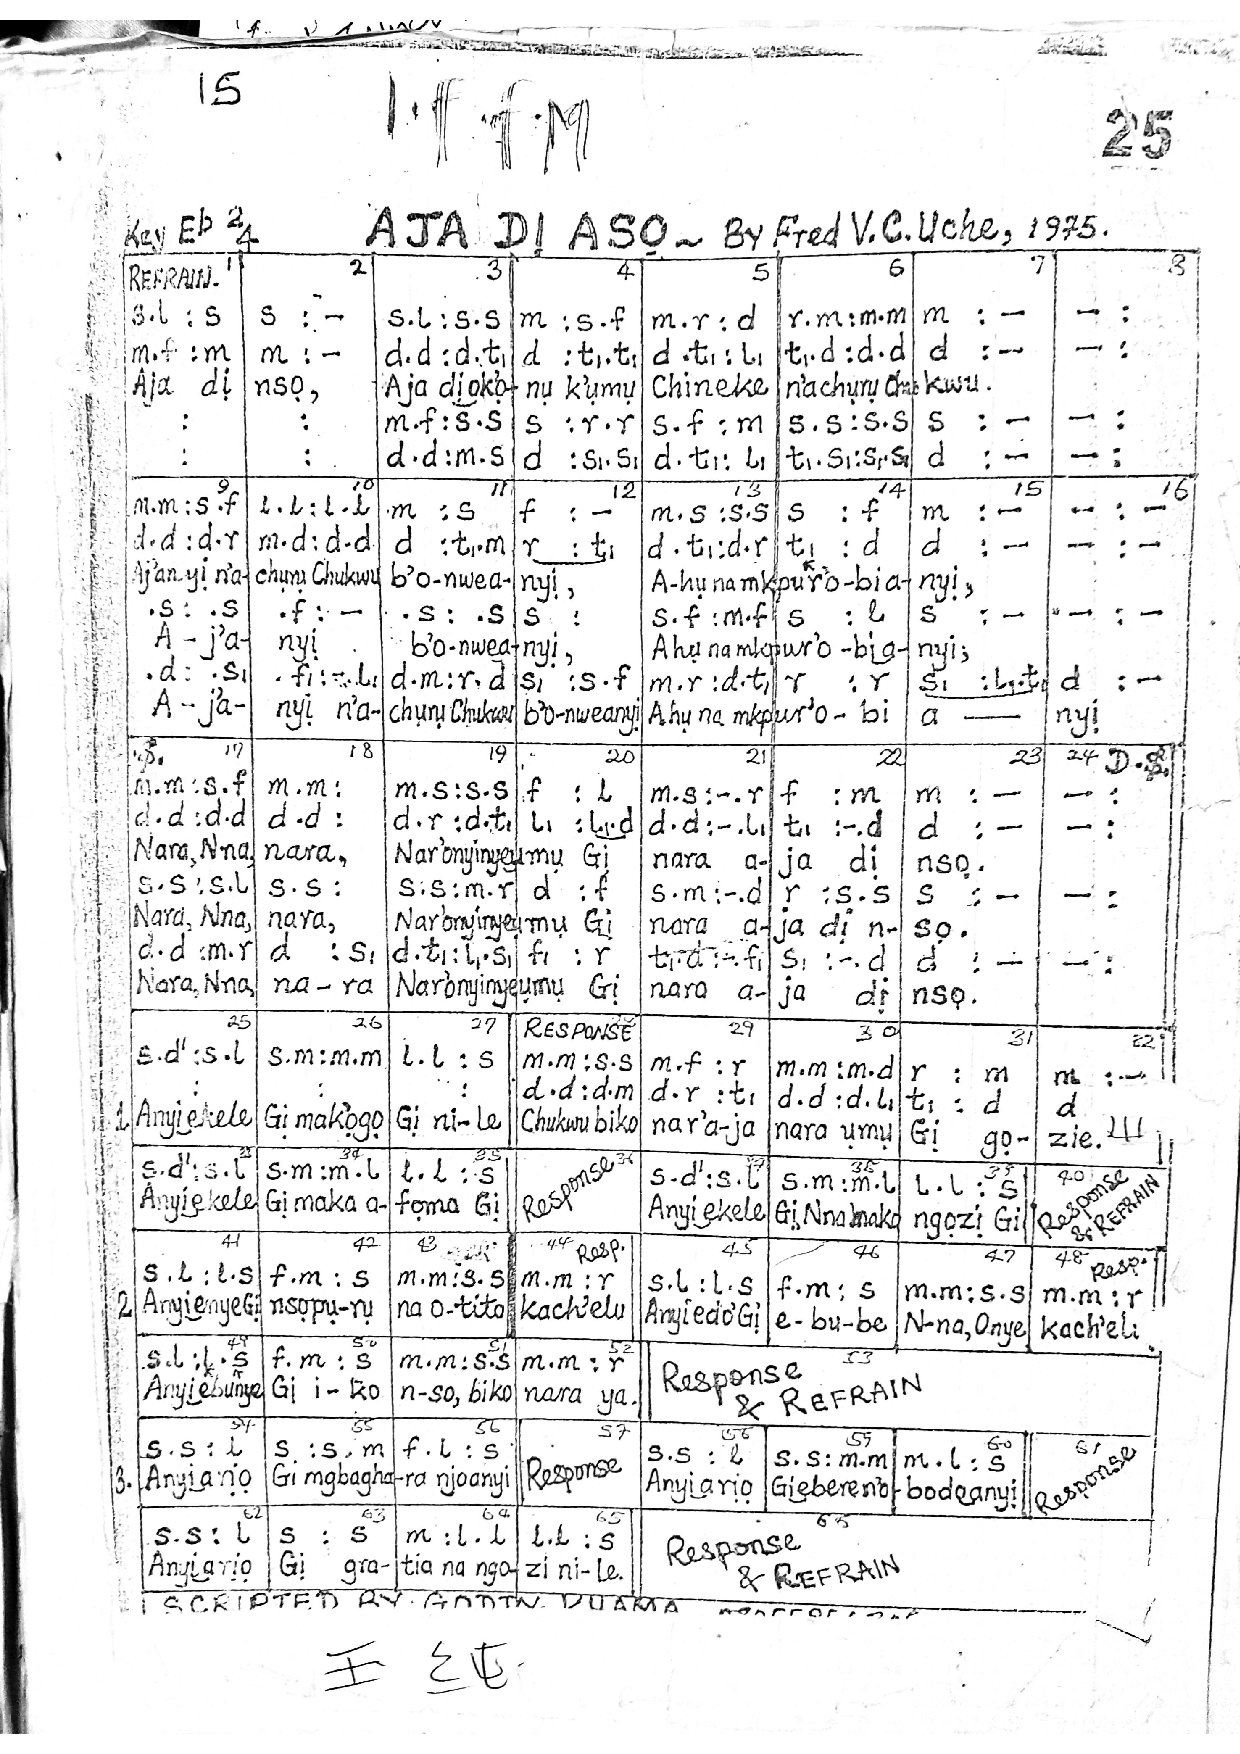 15
25
Key Eb 2/4 AJA DỊ ASỌ ~ By Fred V.C. Uche, 1975.
REFRAIN. 1 2 3 4 5 6 7 8
s.l : s | s : – | s.l : s.s | m : s.f | m.r : d | r.m : m.m | m : – | – :
m.f : m | m : – | d.d : d.t₁ | d : t₁.t₁ | d.t₁ : l₁ | t₁.d : d.d | d : – | – :
Aja dị nsọ, Aja dị ọkọ'- nụ k'ụmụ Chineke n'achụrụ Chukwu.
: | : | m.f : s.s | s : r.r | s.f : m | s.s : s.s | s : – | – :
: | : | d.d : m.s | d : s₁.s₁ | d.t₁ : l₁ | t₁.s₁ : s₁.s₁ | d : – | – :
9 10 11 12 13 14 15 16
m.m : s.f | l.l : l.l | m : s | f : – | m.s : s.s | s : f | m : – | – : –
d.d : d.r | m.d : d.d | d : t₁.m | r : t₁ | d.t₁ : d.r | t₁ : d | d : – | – : –
Aj'anyị n'a- chụrụ Chukwu b'o-nwea- nyị, A-hụ na mkpur'o-bia- nyị,
.s : .s | .f : – | .s : .s | s : | s.f : m.f | s : l | s : – | – : –
A-j'a- nyị b'o-nwea- nyị, Ahụ na mkpur'o-bia- nyị,
.d : .s₁ | .f₁ : –.l₁ | d.m : r.d | s₁ : s.f | m.r : d.t₁ | r : r | s₁ : l₁.t₁ | d : –
A-j'a- nyị n'a- chụrụ Chukwu b'o-nweanyị Ahụ na mkpur'o-bi a — nyị
.S. 17 18 19 20 21 22 23 24 D.S.
m.m : s.f | m.m : | m.s : s.s | f : l | m.s : –.r | f : m | m : – | – :
d.d : d.d | d.d : | d.r : d.t₁ | l₁ : l₁.d | d.d : –.l₁ | t₁ : –.d | d : – | – :
Nara, Nna, nara, Nar'onyinyeụmụ Gị nara a-ja dị nsọ.
s.s : s.l | s.s : | s.s : m.r | d : f | s.m : –.d | r : s.s | s : – | – :
Nara, Nna, nara, Nar'onyinyeụmụ Gị nara a-ja dị n- sọ.
d.d : m.r | d : s₁ | d.t₁ : l₁.s₁ | f₁ : r | t₁.d : –.f₁ | s₁ : –.d | d : – | – :
Nara, Nna, na-ra Nar'onyinyeụmụ Gị nara a-ja dị nsọ.
25 26 27 RESPONSE 29 30 31 32
s.d' : s.l | s.m : m.m | l.l : s | m.m : s.s | m.f : r | m.m : m.d | r : m | m : –
: | : | : | d.d : d.m | d.r : t₁ | d.d : d.l₁ | t₁ : d | d
1. Anyịekele Gị mak'ọgọ Gị ni-le Chukwu biko nar'a-ja nara ụmụ Gị gọ- zie.
33 34 35 36 37 38 39 40
s.d' : s.l | s.m : m.l | l.l : s | Response | s.d' : s.l | s.m : m.l | l.l : s | Response & REFRAIN
Anyịekele Gị maka a- fọma Gị Anyịekele Gị, Nna maka ngọzị Gị
41 42 43 44 Resp. 45 46 47 48 Resp.
s.l : l.s | f.m : s | m.m : s.s | m.m : r | s.l : l.s | f.m : s | m.m : s.s | m.m : r
2. AnyịenyeGị nsọpụ-rụ na o-tito kach'elu Anyịedo'Gị e-bu-be N-na, Onye kach'elu.
49 50 51 52 53
s.l : l.s | f.m : s | m.m : s.s | m.m : r | Response & REFRAIN
Anyịebunye Gị i-ko n-so, biko nara ya.
54 55 56 57 58 59 60 61
s.s : l | s : s.m | f.l : s | Response | s.s : l | s.s : m.m | m.l : s | Response
3. Anyịarịọ Gị mgbagha-ra njoanyị Anyịarịọ Gịeberen'o- bodoanyị
62 63 64 65 65
s.s : l | s : s | m : l.l | l.l : s | Response & REFRAIN
Anyịarịọ Gị gra- tia na ngọ- zi ni-le.
SCRIPTED BY GODIN